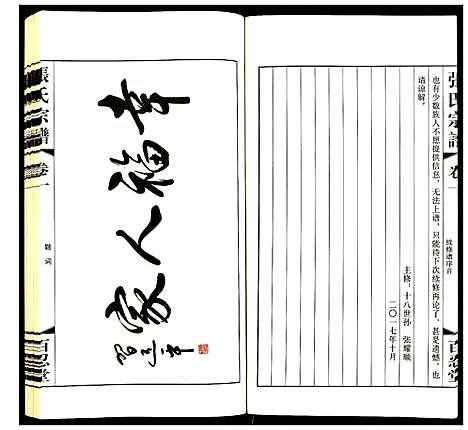 張氏宗譜
卷一
续修谱序言
百忍堂
也有少数族人不愿提供信息，无法上谱，只能待下次续修再论了，甚是遗憾，也
请谅解。
主修：十八世孙 张耀顺
二〇一七年十月
幸福人家
張氏宗譜
卷一
题词
百忍堂